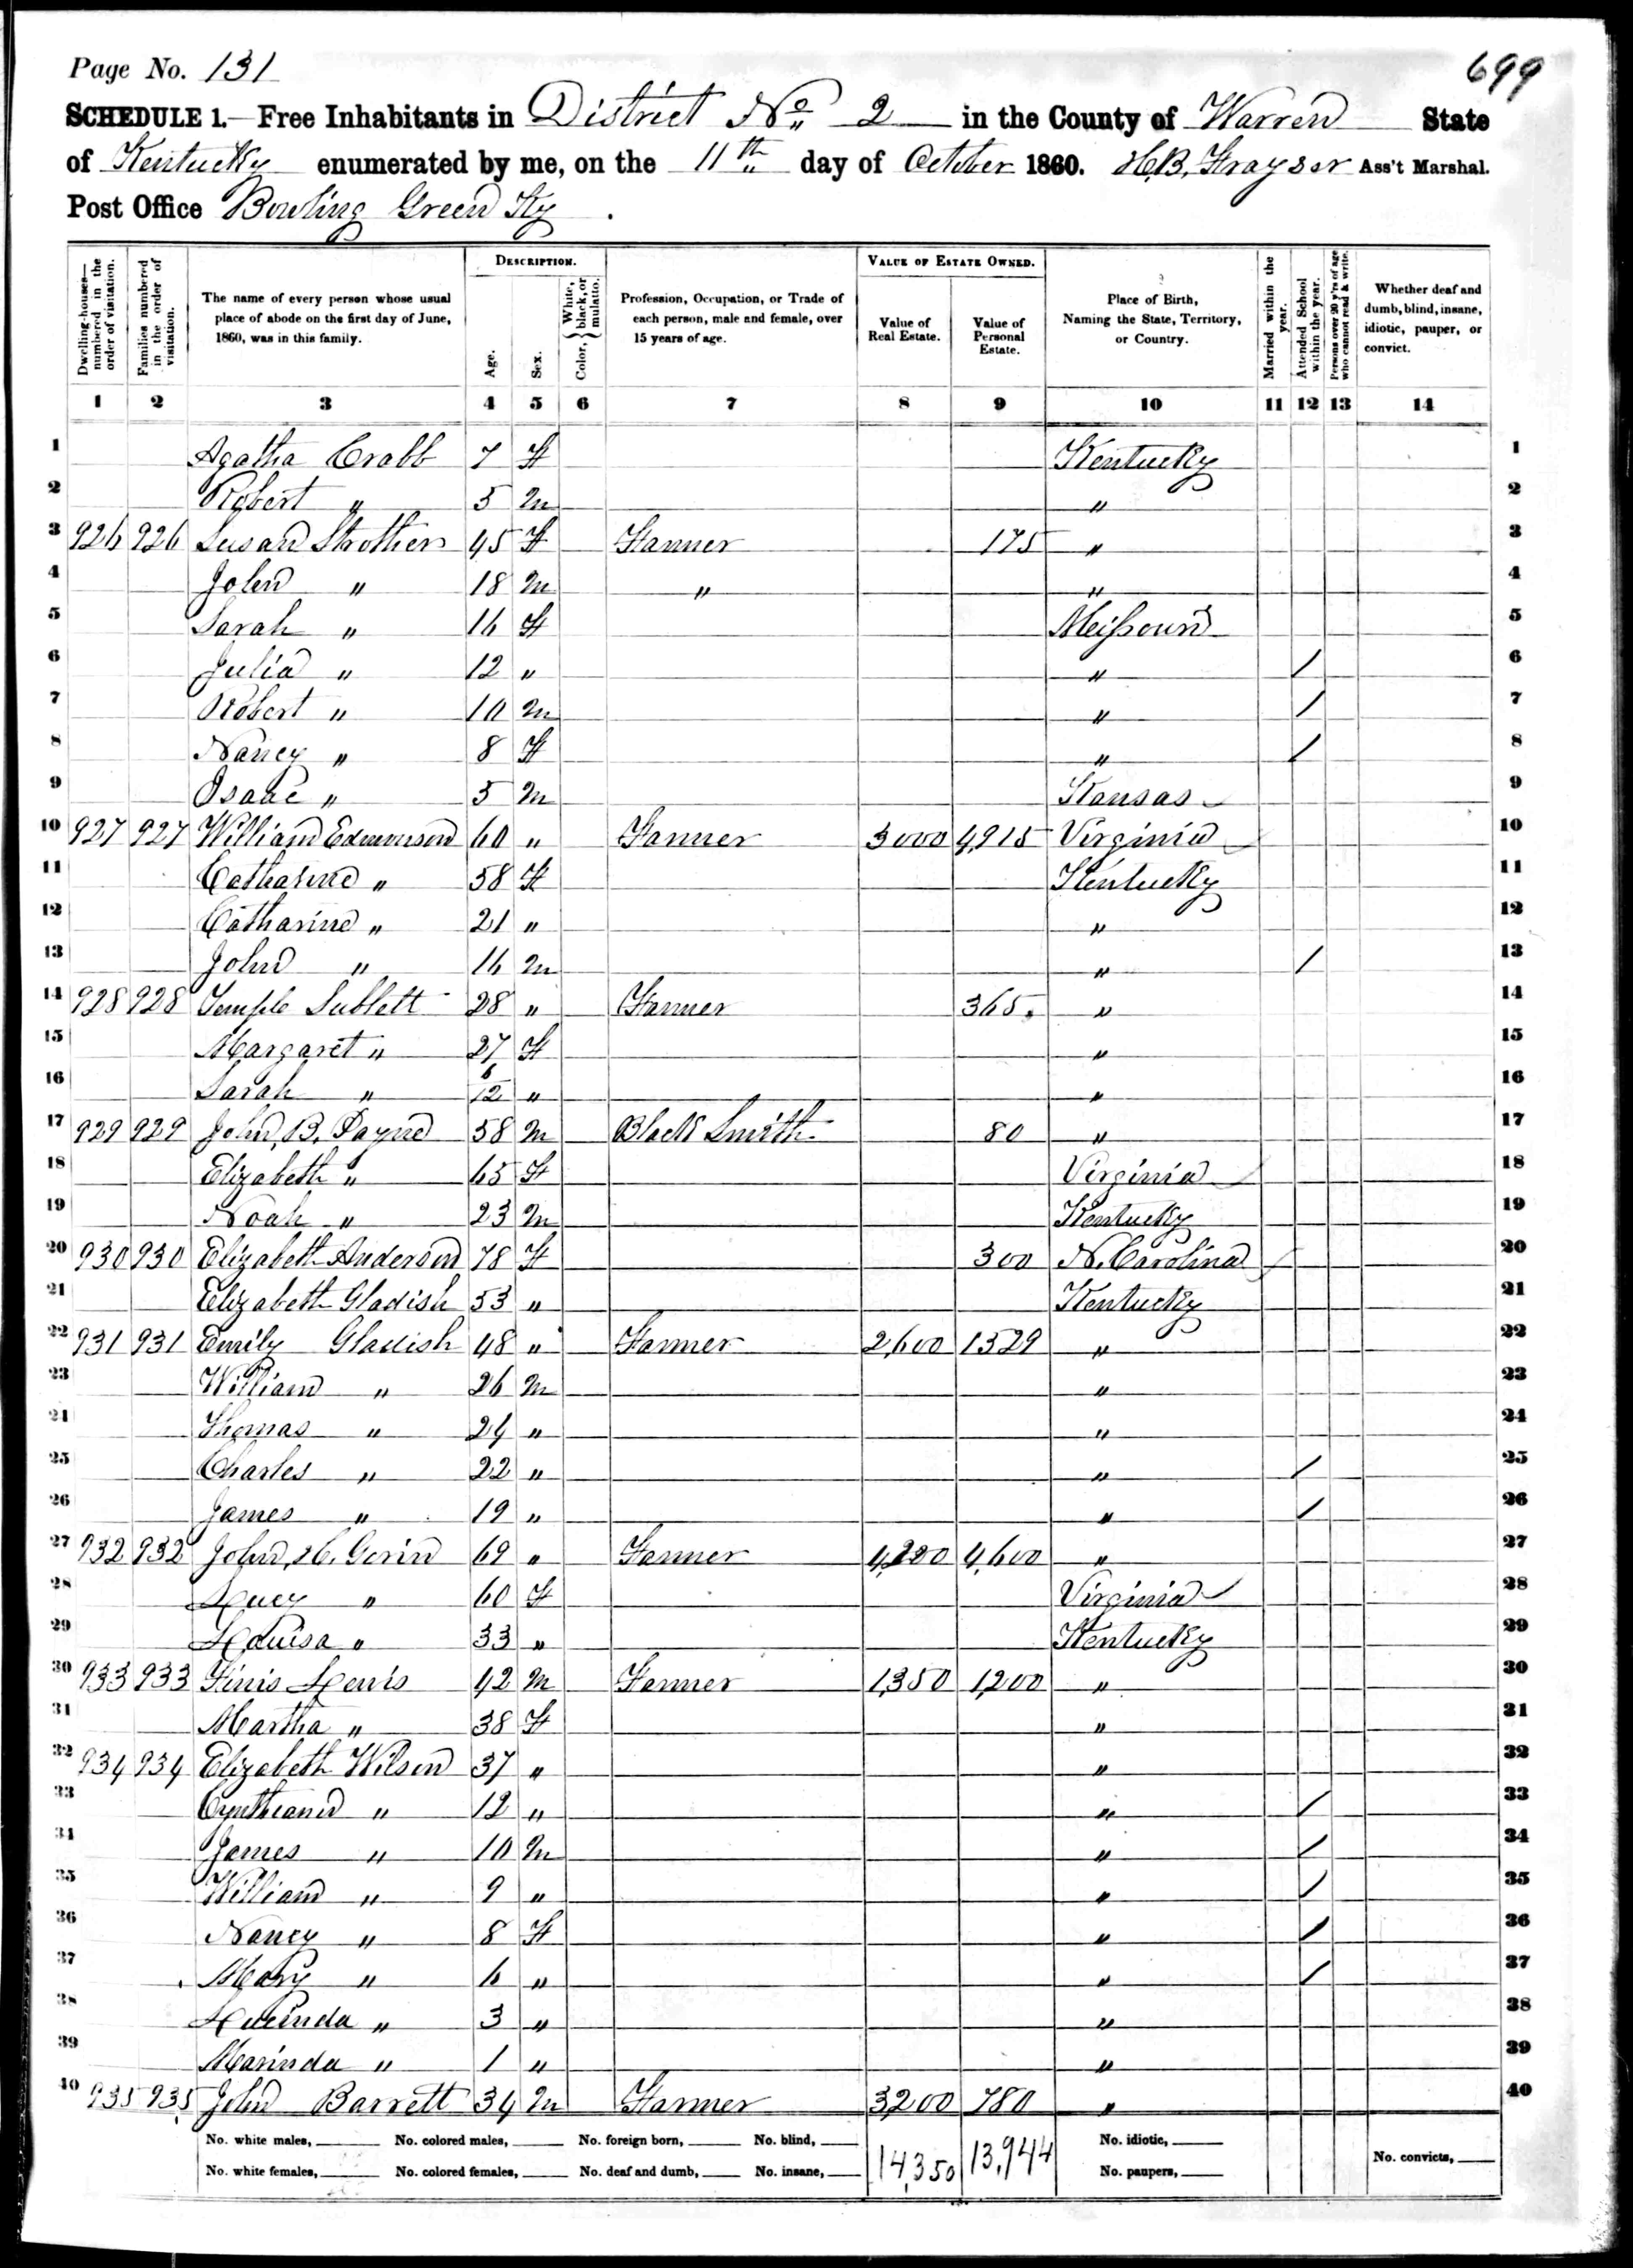 Page No. 131
699
SCHEDULE 1.—Free Inhabitants in District No. 2 in the County of Warren State
of Kentucky enumerated by me, on the 11th day of October 1860. H.B. Strayser Ass't Marshal.
Post Office Bowling Green Ky.
Dwelling-houses—numbered in the order of visitation.
Families numbered in the order of visitation.
The name of every person whose usual place of abode on the first day of June, 1860, was in this family.
DESCRIPTION.
Age.
Sex.
Color, { White, black, or mulatto.
Profession, Occupation, or Trade of each person, male and female, over 15 years of age.
VALUE OF ESTATE OWNED.
Value of Real Estate.
Value of Personal Estate.
Place of Birth, Naming the State, Territory, or Country.
Married within the year.
Attended School within the year.
Persons over 20 y'rs of age who cannot read & write.
Whether deaf and dumb, blind, insane, idiotic, pauper, or convict.
1 2 3 4 5 6 7 8 9 10 11 12 13 14
1 Agatha Crabb 7 F Kentucky 1
2 Robert " 5 M " 2
3 926 926 Susan Strother 45 F Farmer 175 " 3
4 John " 18 M " " 4
5 Sarah " 16 F Meissouri 5
6 Julia " 12 " " / 6
7 Robert " 10 M " / 7
8 Nancy " 8 F " / 8
9 Isaac " 5 M Kansas 9
10 927 927 William Edmonson 60 " Farmer 3000 4,915 Virginia 10
11 Catharine " 58 F Kentucky 11
12 Catharine " 21 " " 12
13 John " 16 M " / 13
14 928 928 Temple Sublett 28 " Farmer 365. " 14
15 Margaret " 27 F " 15
16 Sarah " 6/12 " " 16
17 929 929 John B. Payne 58 M Black Smith 80 " 17
18 Elizabeth " 65 F Virginia 18
19 Noah " 23 M Kentucky 19
20 930 930 Elizabeth Anderson 78 F 300 N. Carolina 20
21 Elizabeth Gladish 53 " Kentucky 21
22 931 931 Emily Gladish 48 " Farmer 2,600 1529 " 22
23 William " 26 M " 23
24 Thomas " 24 " " 24
25 Charles " 22 " " / 25
26 James " 19 " " / 26
27 932 932 John H. Gorin 69 " Farmer 4,200 4,600 " 27
28 Lucy " 60 F Virginia 28
29 Louisa " 33 " Kentucky 29
30 933 933 Finis Lewis 42 M Farmer 1,350 1,200 " 30
31 Martha " 38 F " 31
32 934 934 Elizabeth Wilson 37 " " 32
33 Cyntheann " 12 " " / 33
34 James " 10 M " / 34
35 William " 9 " " / 35
36 Nancy " 8 F " / 36
37 Mary " 6 " " / 37
38 Lucinda " 3 " " 38
39 Marinda " 1 " " 39
40 935 935 John Barrett 34 M Farmer 3,200 780 " 40
No. white males, No. colored males, No. foreign born, No. blind, 14,350 13,944 No. idiotic,
No. white females, No. colored females, No. deaf and dumb, No. insane, No. paupers, No. convicts,